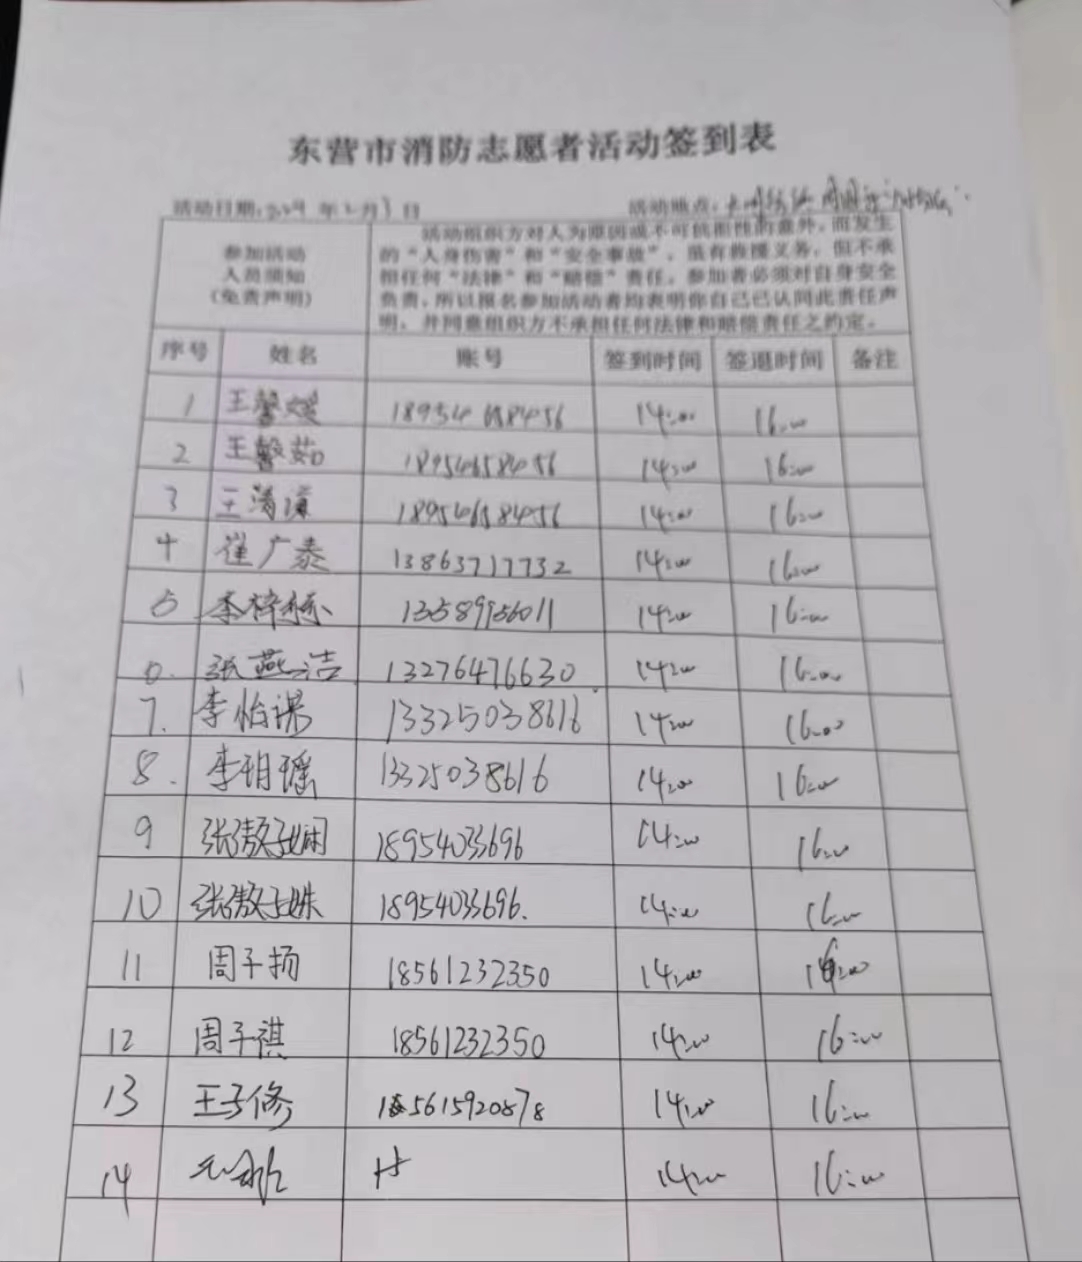 东营市消防志愿者活动签到表
活动日期:2024 年2月3日 活动地点:
参加活动
人员须知
(免责声明)
活动组织方对人为原因或不可抗拒性的意外,而发生
的“人身伤害”和“安全事故”,虽有救援义务,但不承
担任何“法律”和“赔偿”责任。参加者必须对自身安全
负责,所以报名参加活动者均表明你自己已认同此责任声
明,并同意组织方不承担任何法律和赔偿责任之约定。
序号 姓名 账号 签到时间 签退时间 备注
1 王馨媛 18954658456 14:00 16:00
2 王馨茹 18954658456 14:00 16:00
3 王清滢 18954658456 14:00 16:00
4 崔广泰 13863717732 14:00 16:00
5 李梓 13589956011 14:00 16:00
6. 张燕洁 13276476630 14:00 16:00
7. 李怡潞 13325038616 14:00 16:00
8. 李玥瑶 13325038616 14:00 16:00
9 张傲娴 18954033696 14:00 16:00
10 张傲姝 18954033696. 14:00 16:00
11 周子扬 18561232350 14:00 16:00
12 周子祺 18561232350 14:00 16:00
13 王子修 15615920878 14:00 16:00
14 14:00 16:00